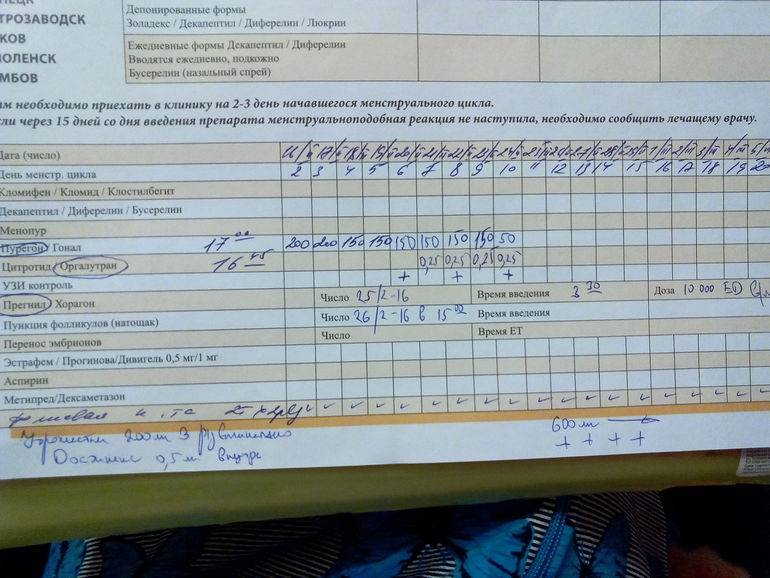 ТРОЗАВОДСК
КОВ
ОЛЕНСК
МБОВ
Депонированные формы
Золадекс / Декапептил / Диферелин / Люкрин
Ежедневные формы Декапептил / Диферелин
Вводятся ежедневно, подкожно
Бусерелин (назальный спрей)
ам необходимо приехать в клинику на 2-3 день начавшегося менструального цикла.
ли через 15 дней со дня введения препарата менструальноподобная реакция не наступила, необходимо сообщить лечащему врачу.
Дата (число)
День менстр. цикла 2 3 4 5 6 7 8 9 10 11 12 13 14 15 16 17 18 19 20
Кломифен / Кломид / Клостилбегит
Декапептил / Диферелин / Бусерелин
Менопур
Пурегон / Гонал 17 00 200 200 150 150 150 150 150 150 50
Цитротид / Оргалутран 16 45 0,25 0,25 0,25 0,25
УЗИ контроль + + +
Прегнил / Хорагон Число 25/2-16 Время введения 3 30 Доза 10 000 ЕД
Пункция фолликулов (натощак) Число 26/2-16 в 15 00 Время введения
Перенос эмбрионов Число Время ЕТ
Эстрафем / Прогинова/Дивигель 0,5 мг/1 мг
Аспирин
Метипред/Дексаметазон
фолиевая к-та
Утрожестан 200 мг 3 р 600 мг
Достинекс 0,5 м внутрь + + + +